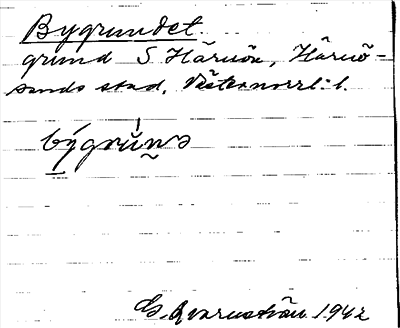 Bygrundet.
grund S. Härnön, Härnö-
sands stad, Västernorrl:s l.
býgrùnə
G. Kvarnström 1942